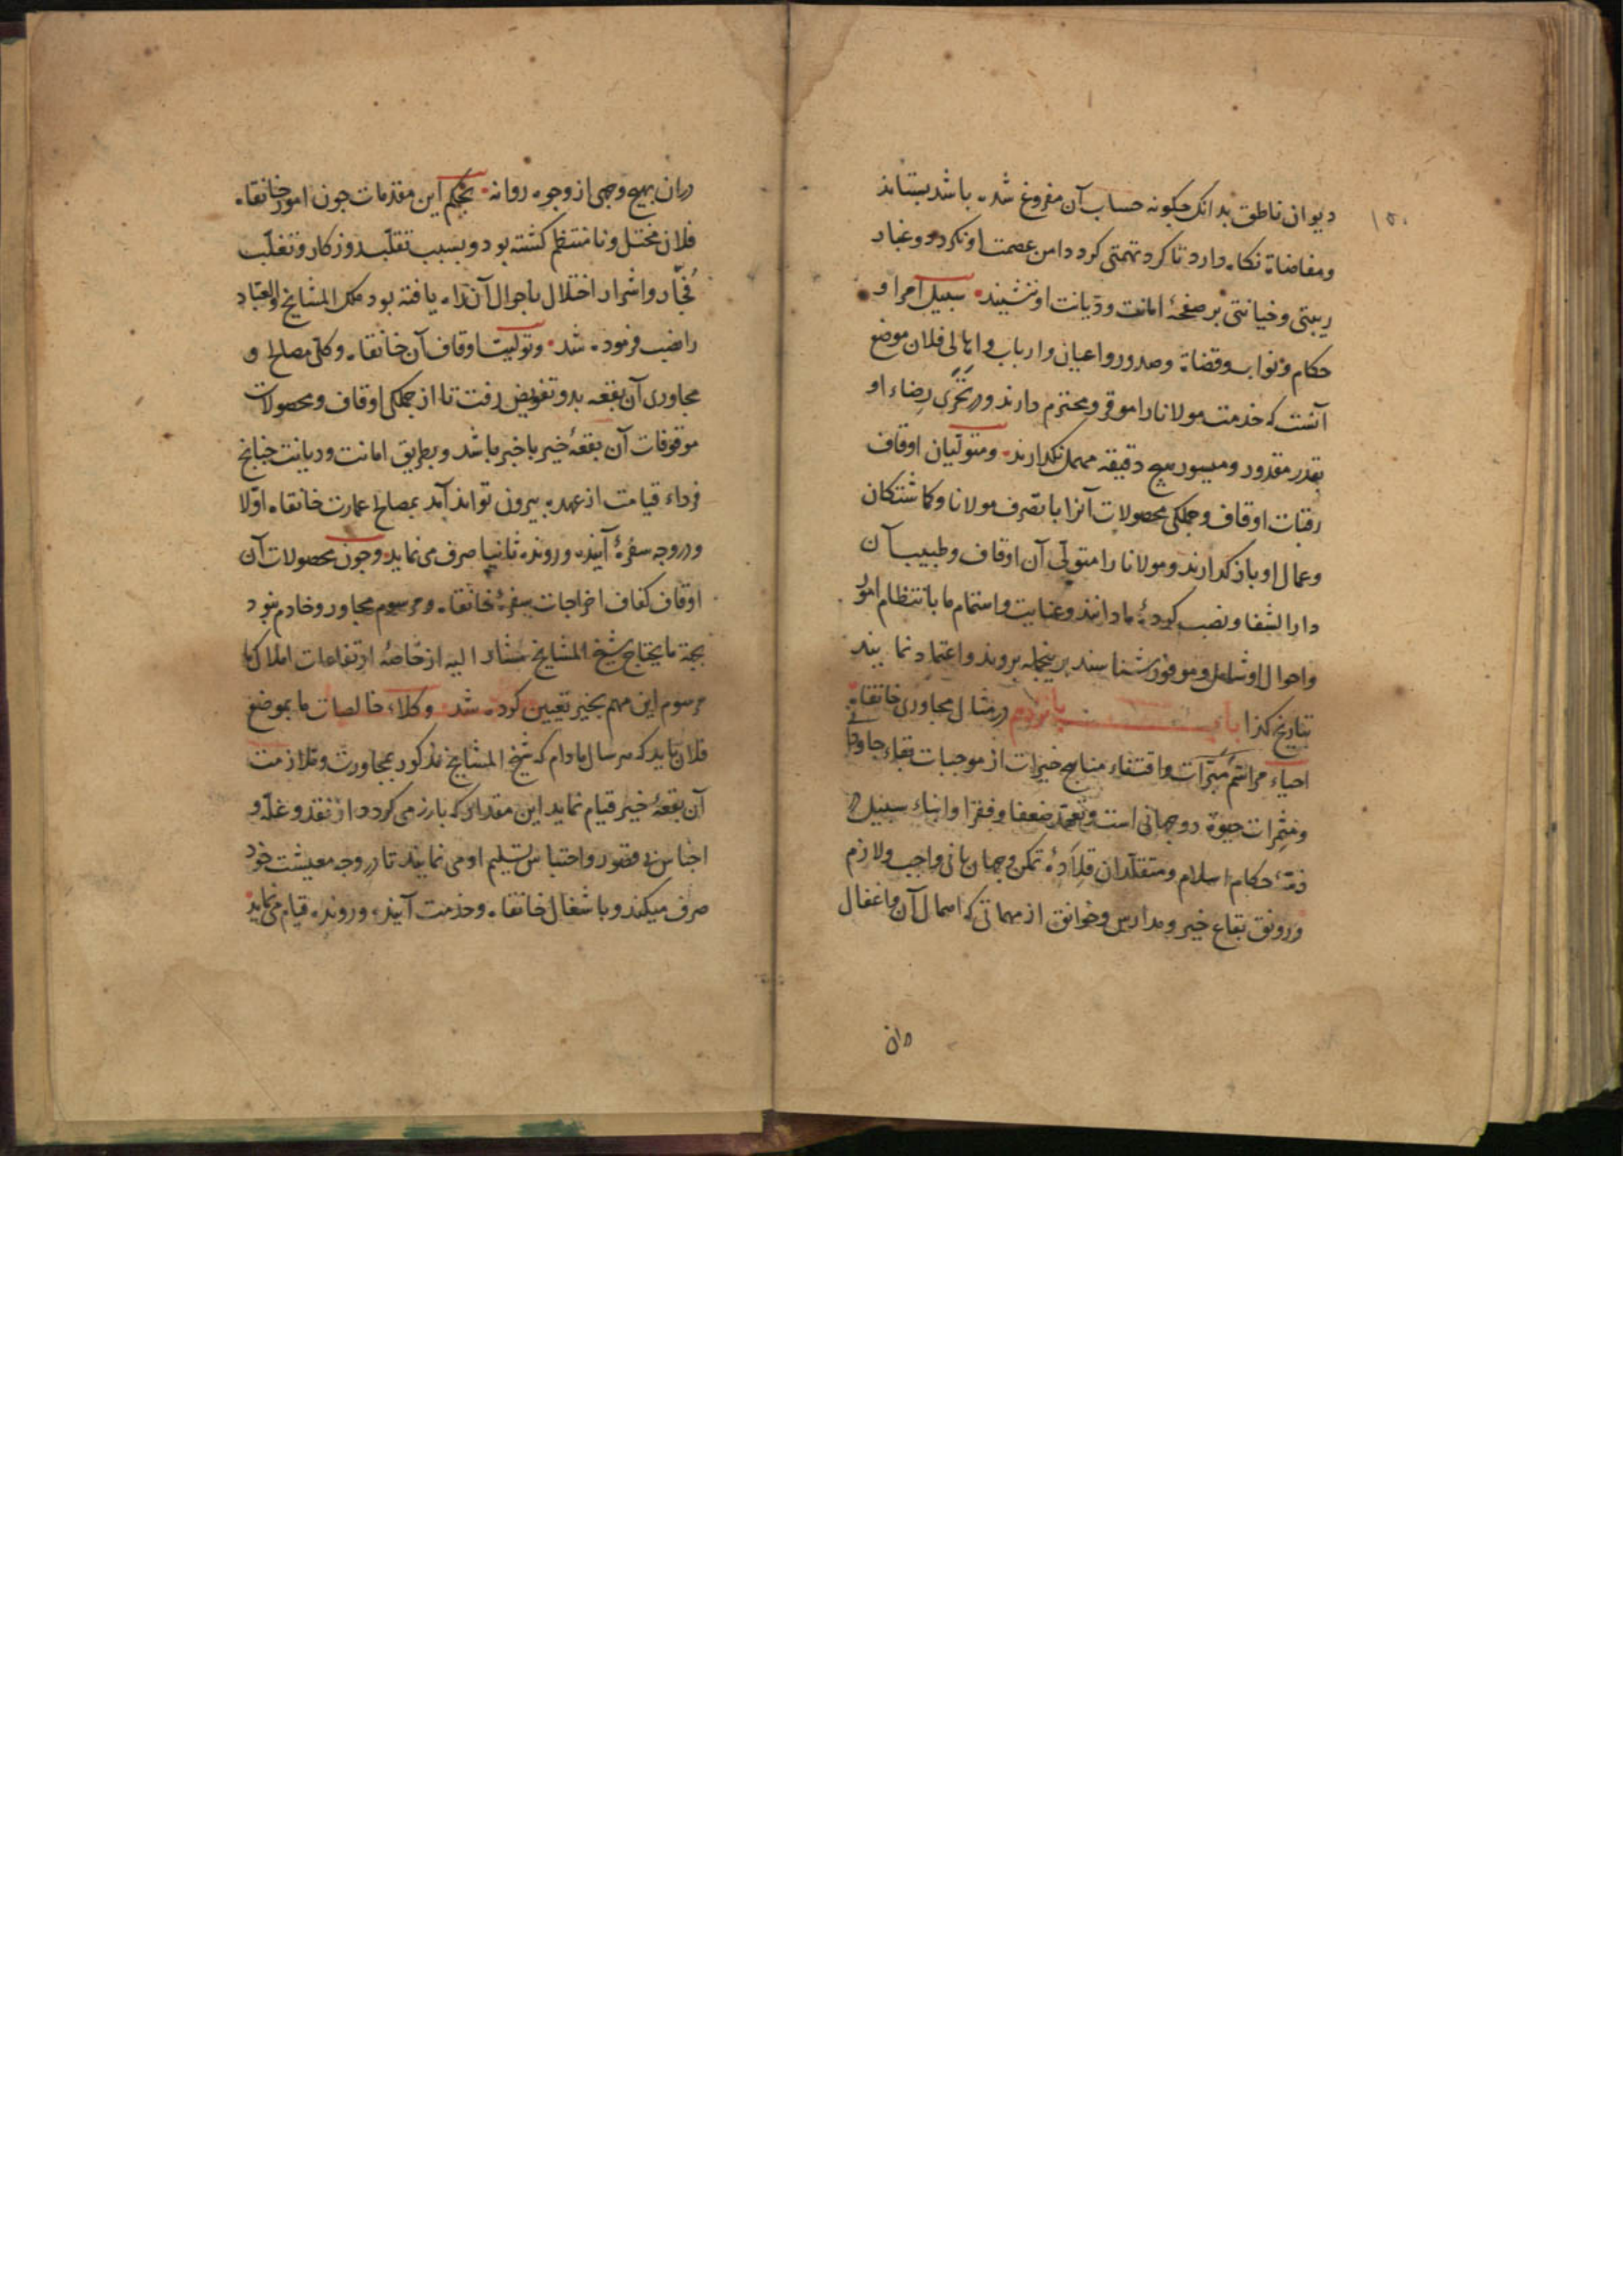 ۱۵۰
دیوان ناطق بدانک چکونه حساب آن مفروغ شده باشد بستاند
ومفاضاة نکاه دارد تا کرد تهمتی کرد دامن عصمت او نکردد وغبار
ریبتی وخیانتی بر صفحهٔ امانت ودیانت او ننشیند سبیل امرا و
حکام ونواب وقضاة وصدور واعیان وارباب واهالی فلان موضع
آنست که خدمت مولانا را موقر ومحترم دارند ودر تحری رضاء او
بقدر مقدور ومیسور هیچ دقیقه مهمل نکذارند ومتولیان اوقاف
رقبات اوقاف وجملکی محصولات آنرا با تصرف مولانا وکماشتکان
وعمال او باز کذارند ومولانا را متولی آن اوقاف وطبیب آن
دار الشفا ونصب کردهٔ ما دانند وعنایت واهتمام ما بانتظام امور
واحوال او شامل وموفور شناسند برینجمله بروند واعتماد نمایند
بتاریخ کذا باب یازدهم در مثال مجاوری خانقاه
احیاء مراسم مبرات واقتفاء مناهج خیرات از موجبات بقاء جاودانی
ومثمرات حیوة دوجهانی است وتعهد ضعفا وفقرا وابناء سبیل در
ذمت حکام اسلام ومتقلدان قلادهٔ تمکن وجهان بانی واجب ولازم
ورونق بقاع خیر ومدارس وخوانق از مهماتی که اهمال آن واغفال
دران
دران بهیچ وجهی از وجوه روا نه بحکم این مقدمات چون امور خانقاه
فلان مختل ونا منتظم کشته بود وبسبب تقلب روزکار وتغلب
فجار واشرار اختلال باحوال آن راه یافته بود ملک المشایخ والعباد
را نصب فرموده شد وتولیت اوقاف آن خانقاه وکلی مصالح و
مجاوری آن بقعه بدو تفویض رفت تا از جملکی اوقاف ومحصولات
موقوفات آن بقعهٔ خیر با خبر باشد وبطریق امانت ودیانت چنانچ
فرداء قیامت از عهده بیرون تواند آمد بمصالح عمارت خانقاه اولا
ودر وجه سفرهٔ آینده ورونده ثانیا صرف می نماید وچون محصولات آن
اوقاف کفاف اخراجات سفرهٔ خانقاه ومرسوم مجاور وخادم نبود
بجهة ما یحتاج شیخ المشایخ مشار الیه از خاصهٔ ارتفاعات املاک ما
مرسوم این مهم بخیر تعیین کرده شد وکلاء خالصات ما بموضع
فلان باید که هر سال مادام که شیخ المشایخ مذکور بمجاورت وملازمت
آن بقعهٔ خیر قیام نماید این مقدار که بارز می کردد از نقد وغله و
اجناس بی قصور واحتباس تسلیم او می نمایند تا در وجه معیشت خود
صرف میکند وباشغال خانقاه وخدمت آینده ورونده قیام می نماید